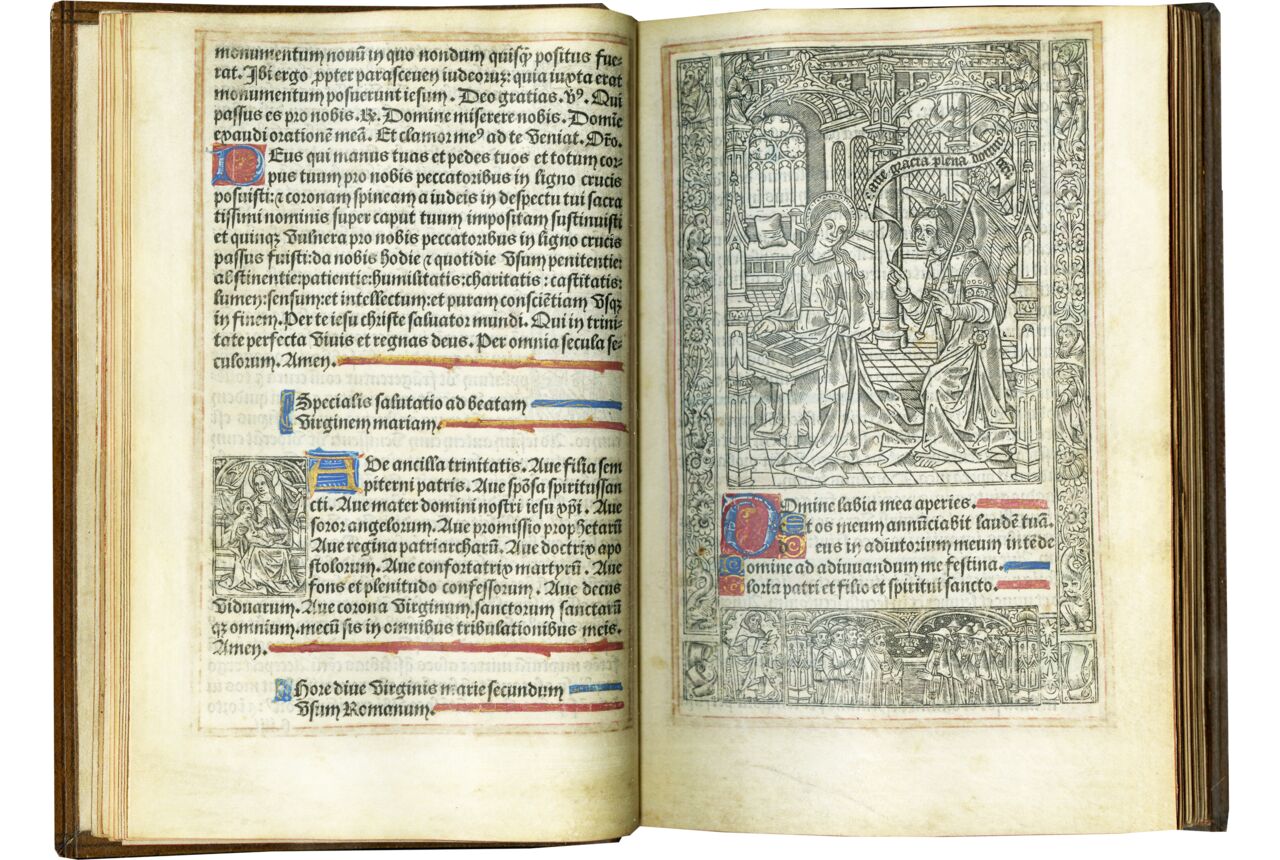 monumentum nouū in quo nondum quisq̄ positus fue-
rat. Ibi ergo ꝓpter parasceuen iudeoruꝫ: quia iuxta erat
monumentum posuerunt iesum. Deo gratias. v̉. Qui
passus es pro nobis. ℞. Domine miserere nobis. Domīe
exaudi orationē meā. Et clamor meꝰ ad te veniat. Oro.
DEus qui manus tuas et pedes tuos et totum cor-
pus tuum pro nobis peccatoribus in ligno crucis
posuisti: ⁊ coronam spineam a iudeis in despectu tui sacra
tissimi nominis super caput tuum impositam sustinuisti
et quinqꝫ vulnera pro nobis peccatoribus in ligno crucis
passus fuisti: da nobis hodie ⁊ quotidie vsum penitentie:
abstinentie: patientie: humilitatis: charitatis: castitatis:
lumen: sensum: et intellectum: et puram consciētiam vsqꝫ
in finem. Per te iesu christe saluator mundi. Qui in trini-
tate perfecta viuis et regnas deus. Per omnia secula se-
culorum. Amen.
Specialis salutatio ad beatam
virginem mariam.
AVe ancilla trinitatis. Aue filia sem
piterni patris. Aue spōsa spiritussan
cti. Aue mater domini nostri iesu xp̄i. Aue
soror angelorum. Aue promissio prophetarū
Aue regina patriarcharū. Aue doctrix apo
stolorum. Aue confortatrix martyrū. Aue
fons et plenitudo confessorum. Aue decus
viduarum. Aue corona virginum. sanctorum sanctarū
qꝫ omnium. mecū sis in omnibus tribulationibus meis.
Amen.
Hore diue virginis marie secundum
vsum Romanum.
aue gracia plena dominꝰ
Domine labia mea aperies.
Et os meum annūciabit laudē tuā.
deus in adiutorium meum intēde
Domine ad adiuuandum me festina.
Gloria patri et filio et spiritui sancto.